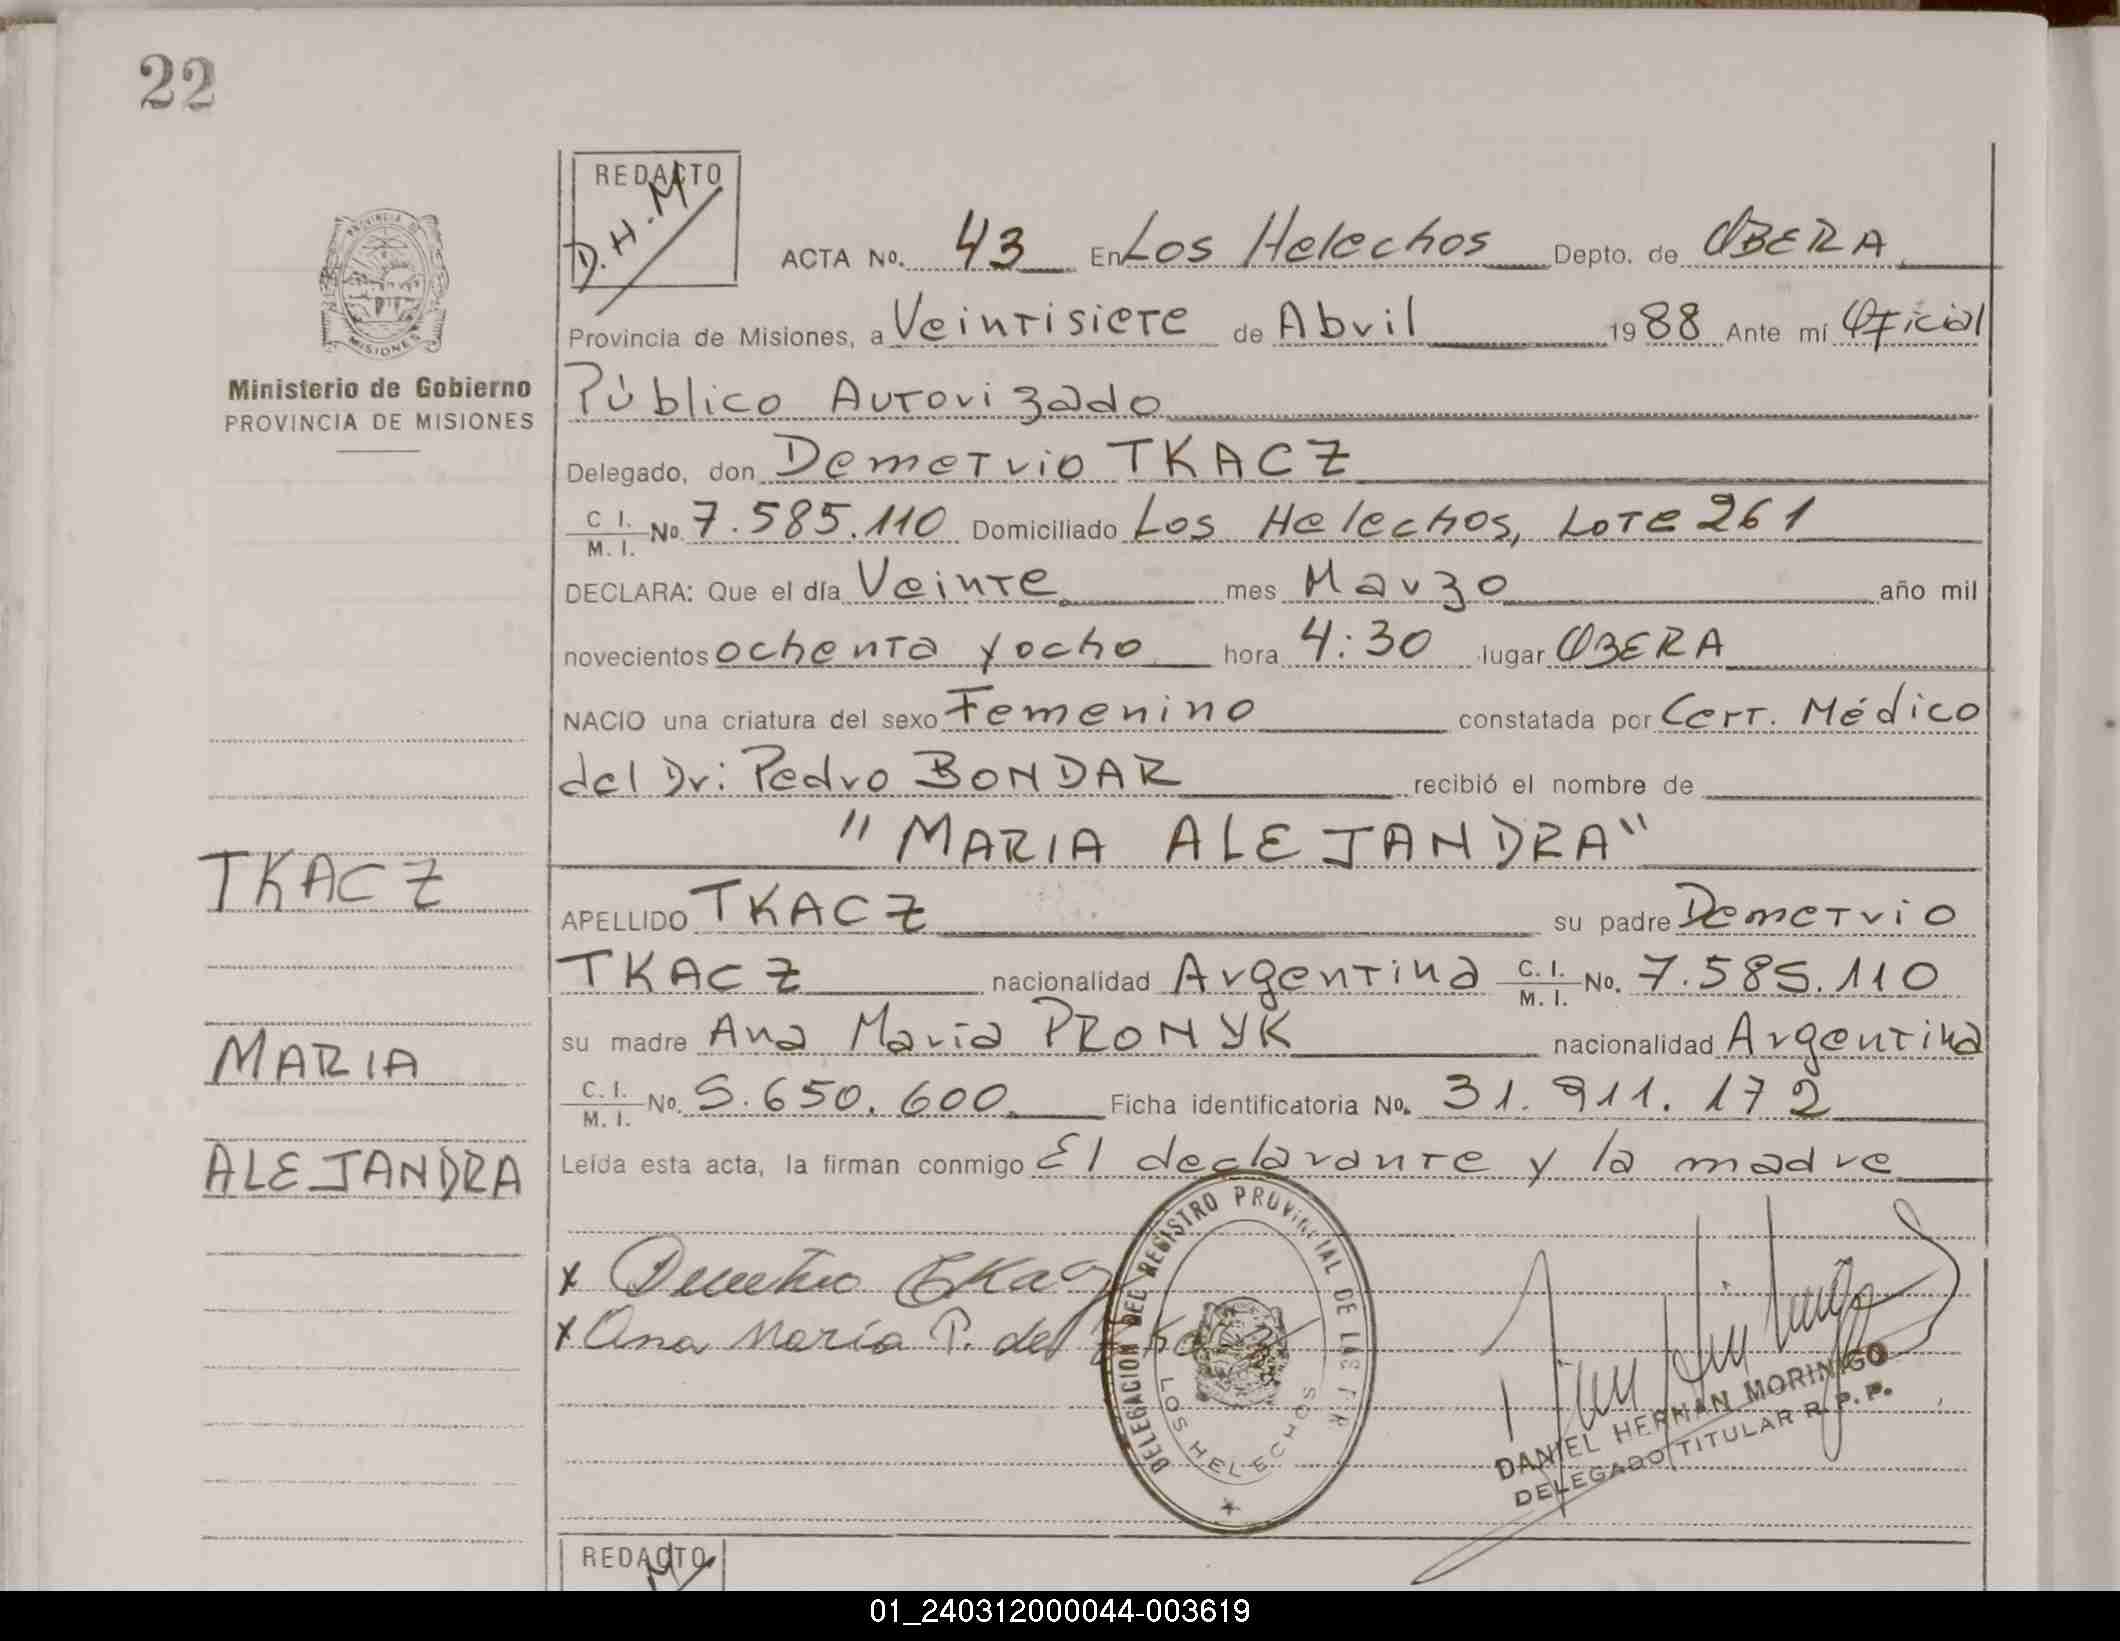 22
REDACTO
D.H.M
PROVINCIA DE
MISIONES
Ministerio de Gobierno
PROVINCIA DE MISIONES
ACTA No. 43 En Los Helechos Depto. de OBERA
Provincia de Misiones, a Veintisiete de Abril 1988 Ante mí Oficial
Público Autorizado
Delegado, don Demetrio TKACZ
C. I. / M. I. No. 7.585.110 Domiciliado Los Helechos, Lote 261
DECLARA: Que el día Veinte mes Marzo año mil
novecientos ochenta y ocho hora 4:30 lugar OBERA
NACIO una criatura del sexo Femenino constatada por Cert. Médico
del Dr: Pedro BONDAR recibió el nombre de
"MARIA ALEJANDRA"
TKACZ
APELLIDO TKACZ su padre Demetrio
TKACZ nacionalidad Argentina C. I. / M. I. No. 7.585.110
MARIA
su madre Ana Maria PRONYK nacionalidad Argentina
C. I. / M. I. No. 5.650.600 Ficha identificatoria No. 31.911.172
ALEJANDRA
Leída esta acta, la firman conmigo El declarante y la madre
x Demetrio Tkacz
x Ana María P. de
DELEGACION DEL REGISTRO PROVINCIAL DE LAS
LOS HELECHOS
DANIEL HERNAN MORINIGO
DELEGADO TITULAR R.P.P.
REDACTO
01_240312000044-003619